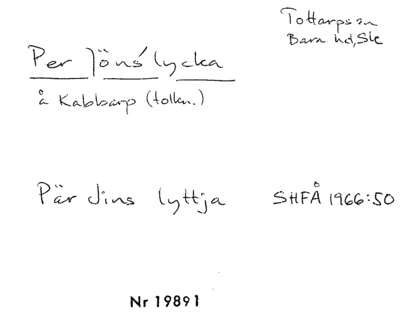 Tottarps sn
Bara hd, Sk
Per Jöns' lycka
å Kabbarp (tollkn.)
Pär Jins lyttja SHFÅ 1966:50
Nr 19891